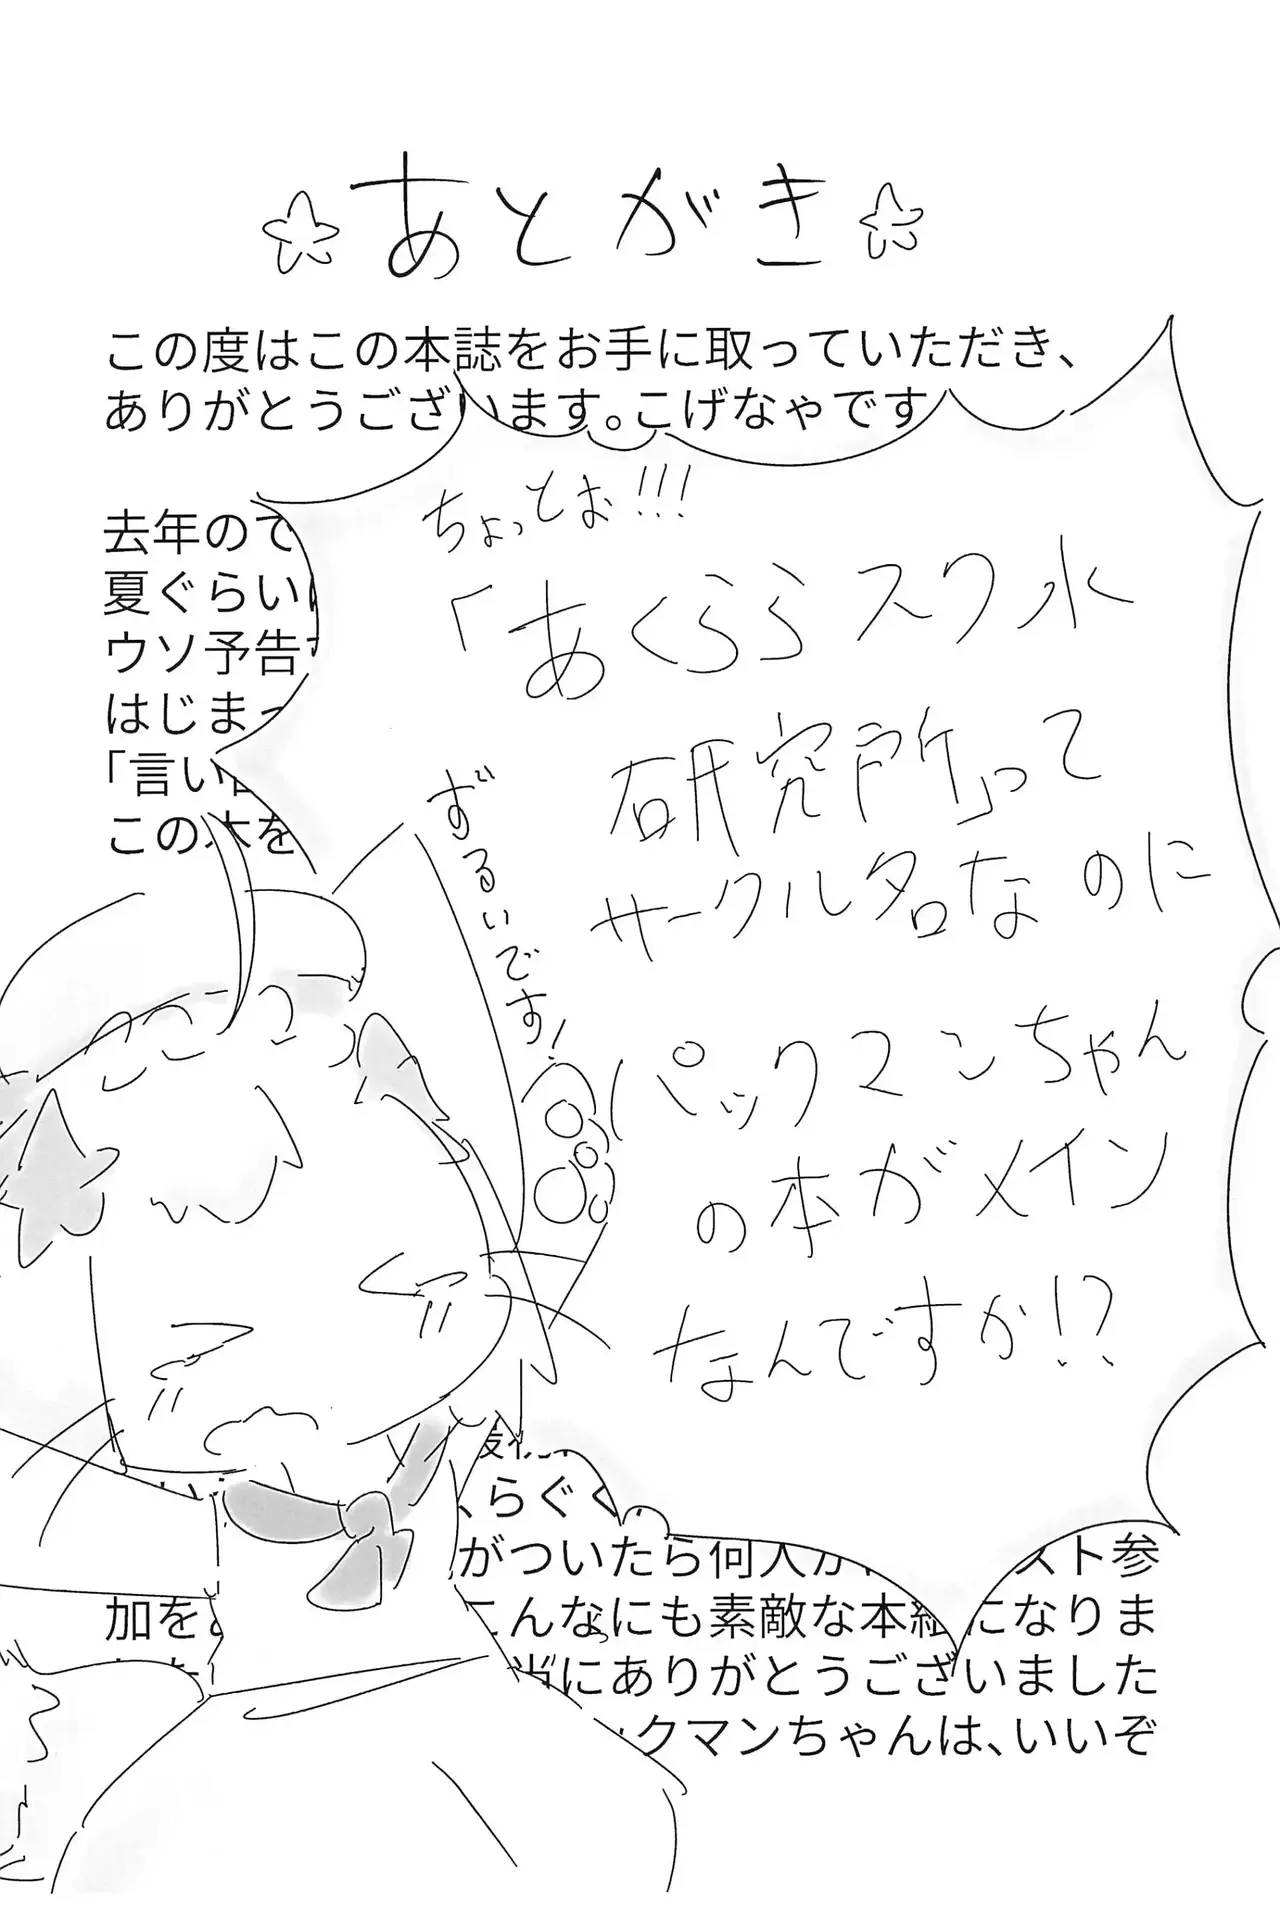 ☆あとがき☆
この度はこの本誌をお手に取っていただき、
ありがとうございます。こげなゃです
去年ので
夏ぐらいに
ウソ予告
はじまっ
「言い
この本を
ちょっとぉ!!!
「あくららスク水
研究所」って
サークル名なのに
パックマンちゃん
の本がメイン
なんですか!?
ずるいです!
、らぐ
がついたら何人か
スト参
加を
こんなにも素敵な本
になりま
当にありがとうございました
ックマンちゃんは、いいぞ